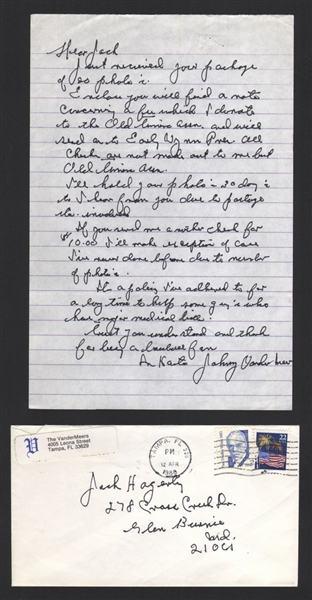 Dear Jack
Just received your package
of 20 photo's.
Enclose you will find a note
concerning a fee which I donate
to the Old Timers Assn. and will
send on to Early Wynn Pres. All
Checks are not made out to me but
Old Timers Assn.
I'll hold your photo's 20 days
to hear from you due to postage
etc. involved
If you send me a check for
10.00 I'll make exception of case
I've never done before due to number
of photo's.
It's a policy I've adhered to for
a long time to help some guy's who
have major medical bills.
Trust you understand and thank
for being a baseball fan
Johnny Vander Meer
V
The VanderMeers
4005 Leona Street
Tampa, FL 33629
TAMPA, FL
PM
12 APR
1988
22
Jack Hagerty
278 Cross Creek Dr.
Glen Burnie
Md.
21061